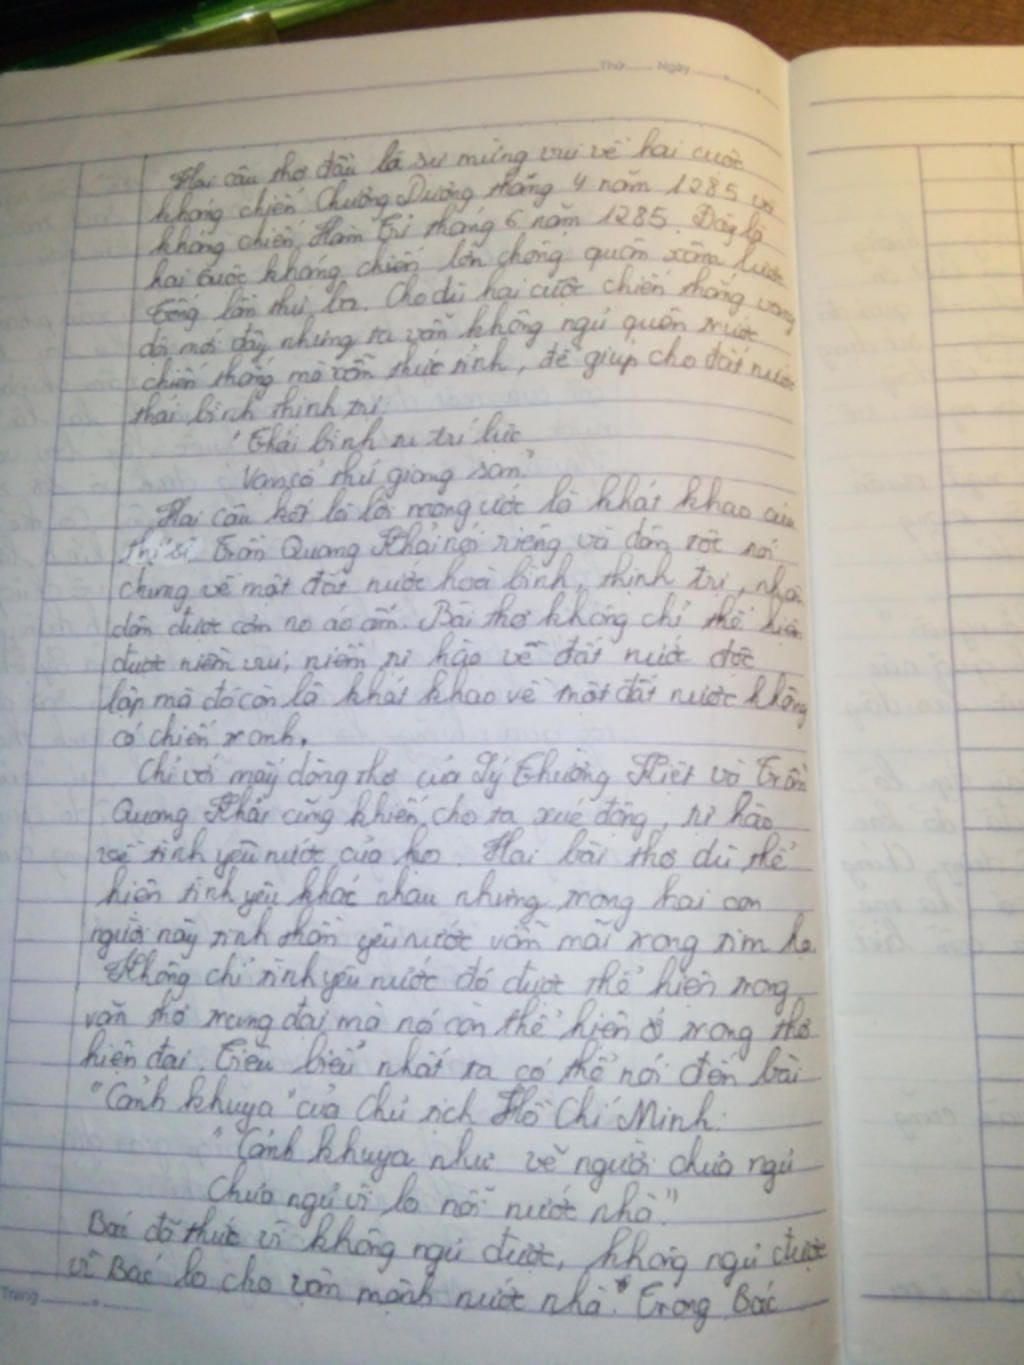 Thứ Ngày
Hai câu thơ đầu là sự mừng vui về hai cuộc
kháng chiến Chương Dương tháng 4 năm 1285 và
kháng chiến Hàm Tử tháng 6 năm 1285. Đây là
hai cuộc kháng chiến lớn chống quân xâm lược
Tống lần thứ ba. Cho dù hai cuộc chiến thắng vang
dội mới đây nhưng ta vẫn không ngủ quên trước
chiến thắng mà vẫn thức tỉnh, để giúp cho đất nước
thái bình thịnh trị:
"Thái bình tu trí lực
Vạn cổ thử giang san"
Hai câu kết là lời mong ước là khát khao của
thi sĩ Trần Quang Khải nói riêng và dân tộc nói
chung về một đất nước hoà bình, thịnh trị, nhân
dân được cơm no áo ấm. Bài thơ không chỉ thể hiện
được niềm vui, niềm tự hào về đất nước độc
lập mà đó còn là khát khao về một đất nước không
có chiến tranh.
Chỉ với mấy dòng thơ của Lý Thường Kiệt và Trần
Quang Khải cũng khiến cho ta xúc động, tự hào
về tình yêu nước của họ. Hai bài thơ dù thể
hiện tình yêu khác nhau nhưng trong hai con
người này tinh thần yêu nước vẫn mãi trong tim họ.
Không chỉ tình yêu nước đó được thể hiện trong
văn thơ trung đại mà nó còn thể hiện ở trong thơ
hiện đại. Tiêu biểu nhất ta có thể nói đến bài
"Cảnh khuya" của Chủ tịch Hồ Chí Minh:
"Cảnh khuya như vẽ người chưa ngủ
Chưa ngủ vì lo nỗi nước nhà."
Bác đã thức vì không ngủ được, không ngủ được
vì Bác lo cho vận mệnh nước nhà. Trong Bác
Trang